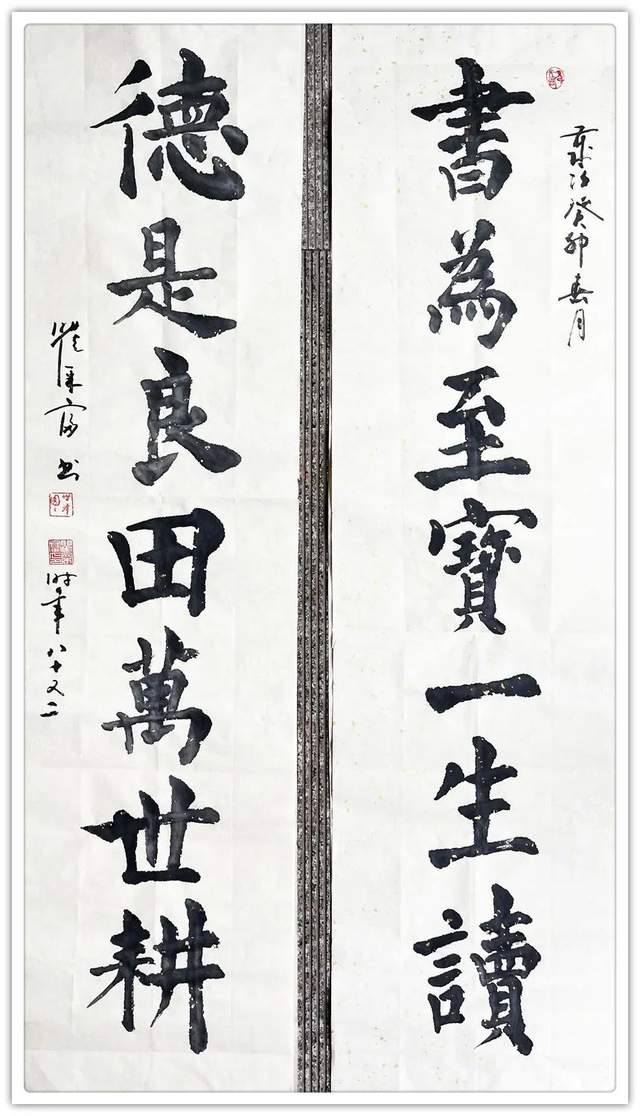 歲次癸卯春月
書為至寶一生讀
德是良田萬世耕
時年八十又二